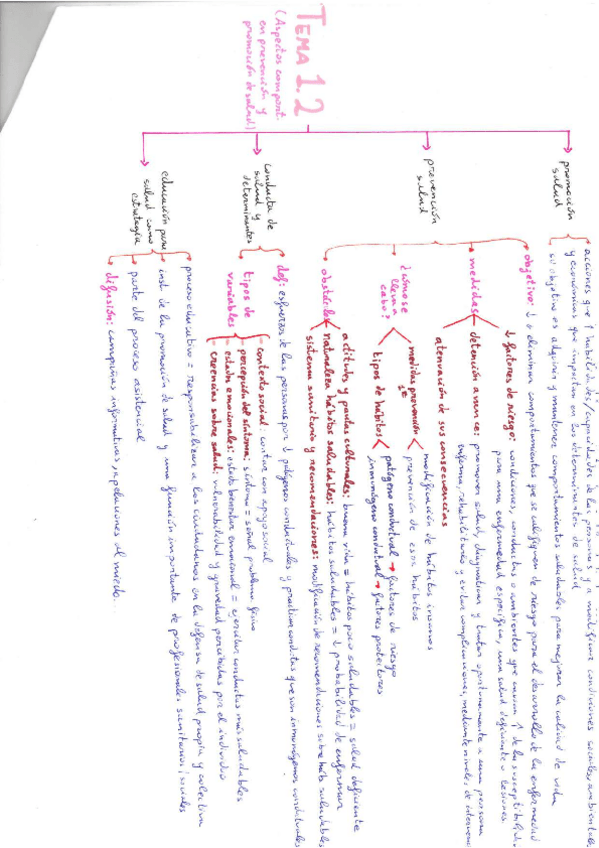 TEMA 1.2
(Aspectos comport.
en prevención y
promoción de salud)
promoción
salud
acciones que ↑ habilidades/capacidades de las personas y a modificar condiciones sociales, ambientales
y económicas que impactan en los determinantes de salud
su objetivo es adquirir y mantener comportamientos saludables para mejorar la calidad de vida
prevención
salud
objetivo: ↓ o eliminar comportamientos que se califiquen de riesgo para el desarrollo de la enfermedad
↓ factores de riesgo: condiciones, conductas o ambientes que causan ↑ de la susceptibilidad
para una enfermedad específica, una salud deficiente o lesiones.
medidas
detención avance: promover salud, diagnosticar y tratar oportunamente a una persona
enferma, rehabilitarla y evitar complicaciones, mediante niveles de intervenc
atenuación de sus consecuencias
¿cómo se
lleva a
cabo?
medidas prevención
1º
modificación de hábitos insanos
prevención de esos hábitos
tipos de hábitos
patógeno conductual → factores de riesgo
inmunógeno conductual → factores protectores
obstáculos
actitudes y pautas culturales: buena vida = hábitos poco saludables = salud deficiente
naturaleza hábitos saludables: hábitos saludables = ↓ probabilidad de enfermar
sistema sanitario y recomendaciones: modificación de recomendaciones sobre háb. saludables
conducta de
salud y
determinantes
def: esfuerzo de las personas por ↓ patógenos conductuales y practicar conductas que son inmunógenos conductuales
tipos de
variables
contexto social: contar con apoyo social
percepción del síntoma: síntoma = señal problema físico
estados emocionales: estado bienestar emocional = ejercitar conductas más saludables
creencias sobre salud: vulnerabilidad y gravedad percibidas por el individuo
educación para
salud como
estrategia
proceso educativo = responsabilizar a los ciudadanos en la defensa de salud propia y colectiva
inst. de la promoción de salud y una función importante de profesionales sanitarios/sociales
parte del proceso asistencial
difusión: campañas informativas, apelaciones al miedo...